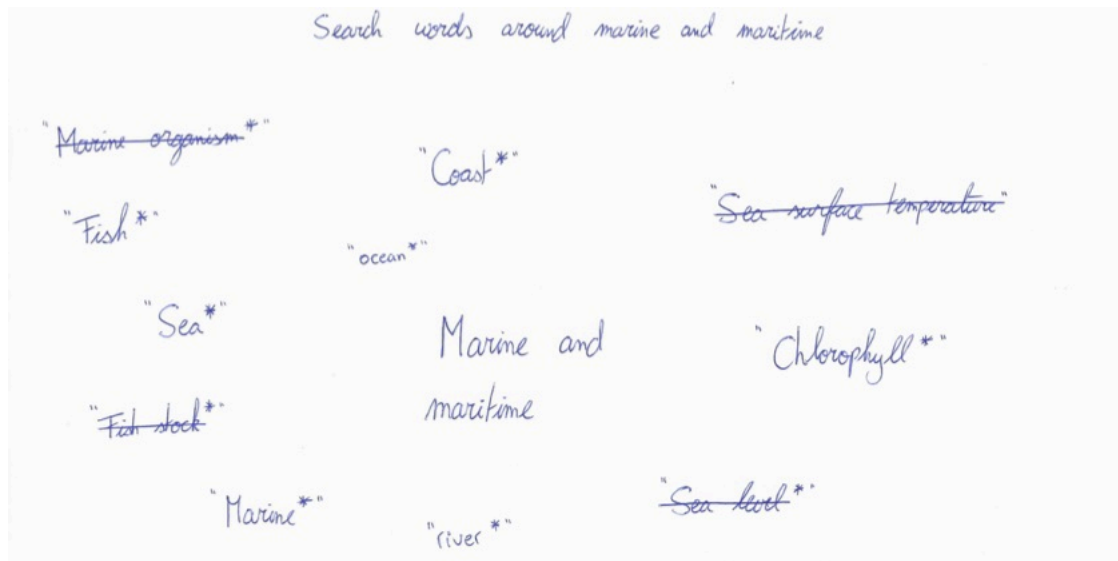 Search words around marine and maritime
"Marine organism*"
"Coast*"
"Sea surface temperature"
"Fish*"
"ocean*"
"Sea*"
Marine and
maritime
"Chlorophyll*"
"Fish stock*"
"Marine*"
"Sea level*"
"river*"